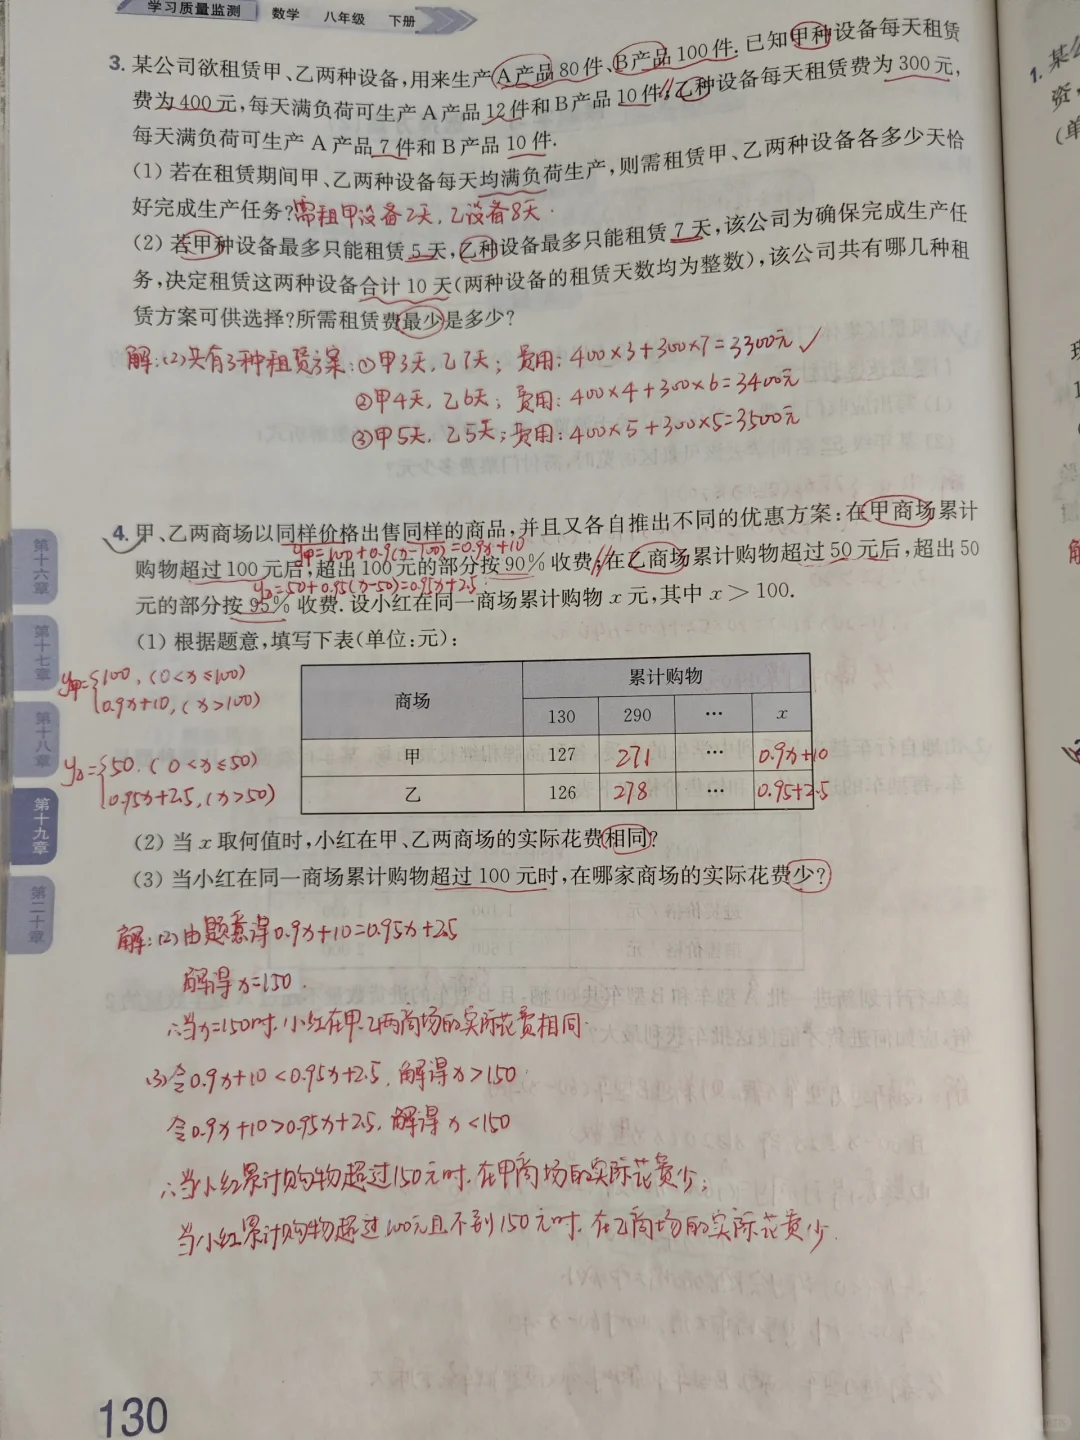 学习质量监测 数学 八年级 下册
3. 某公司欲租赁甲、乙两种设备,用来生产A产品80件、B产品100件.已知甲种设备每天租赁
费为400元,每天满负荷可生产A产品12件和B产品10件;乙种设备每天租赁费为300元,
每天满负荷可生产A产品7件和B产品10件.
(1) 若在租赁期间甲、乙两种设备每天均满负荷生产,则需租赁甲、乙两种设备各多少天恰
好完成生产任务?需租甲设备2天,乙设备8天.
(2) 若甲种设备最多只能租赁5天,乙种设备最多只能租赁7天,该公司为确保完成生产任
务,决定租赁这两种设备合计10天(两种设备的租赁天数均为整数),该公司共有哪几种租
赁方案可供选择?所需租赁费最少是多少?
解:(2)共有3种租赁方案:①甲3天,乙7天;费用:400×3+300×7=3300元✓
②甲4天,乙6天;费用:400×4+300×6=3400元
③甲5天,乙5天;费用:400×5+300×5=3500元
4. 甲、乙两商场以同样价格出售同样的商品,并且又各自推出不同的优惠方案:在甲商场累计
y甲=100+0.9(x-100)=0.9x+10
购物超过100元后,超出100元的部分按90%收费;在乙商场累计购物超过50元后,超出50
y乙=50+0.95(x-50)=0.95x+2.5
元的部分按95%收费.设小红在同一商场累计购物x元,其中x>100.
(1) 根据题意,填写下表(单位:元):
y甲={100,(0<x≤100)
0.9x+10,(x>100)
y乙={50.(0<x≤50)
0.95x+2.5,(x>50)
商场 累计购物
130 290 … x
甲 127 271 … 0.9x+10
乙 126 278 … 0.95+2.5
(2) 当x取何值时,小红在甲、乙两商场的实际花费相同?
(3) 当小红在同一商场累计购物超过100元时,在哪家商场的实际花费少?
解:(2)由题意得0.9x+10=0.95x+2.5
解得x=150.
∴当x=150时,小红在甲、乙两商场的实际花费相同.
(3)令0.9x+10<0.95x+2.5,解得x>150.
令0.9x+10>0.95x+2.5,解得x<150
∴当小红累计购物超过150元时,在甲商场的实际花费少;
当小红累计购物超过100元且不到150元时,在乙商场的实际花费少.
第十六章
第十七章
第十八章
第十九章
第二十章
130
1. 某公
资,
(单